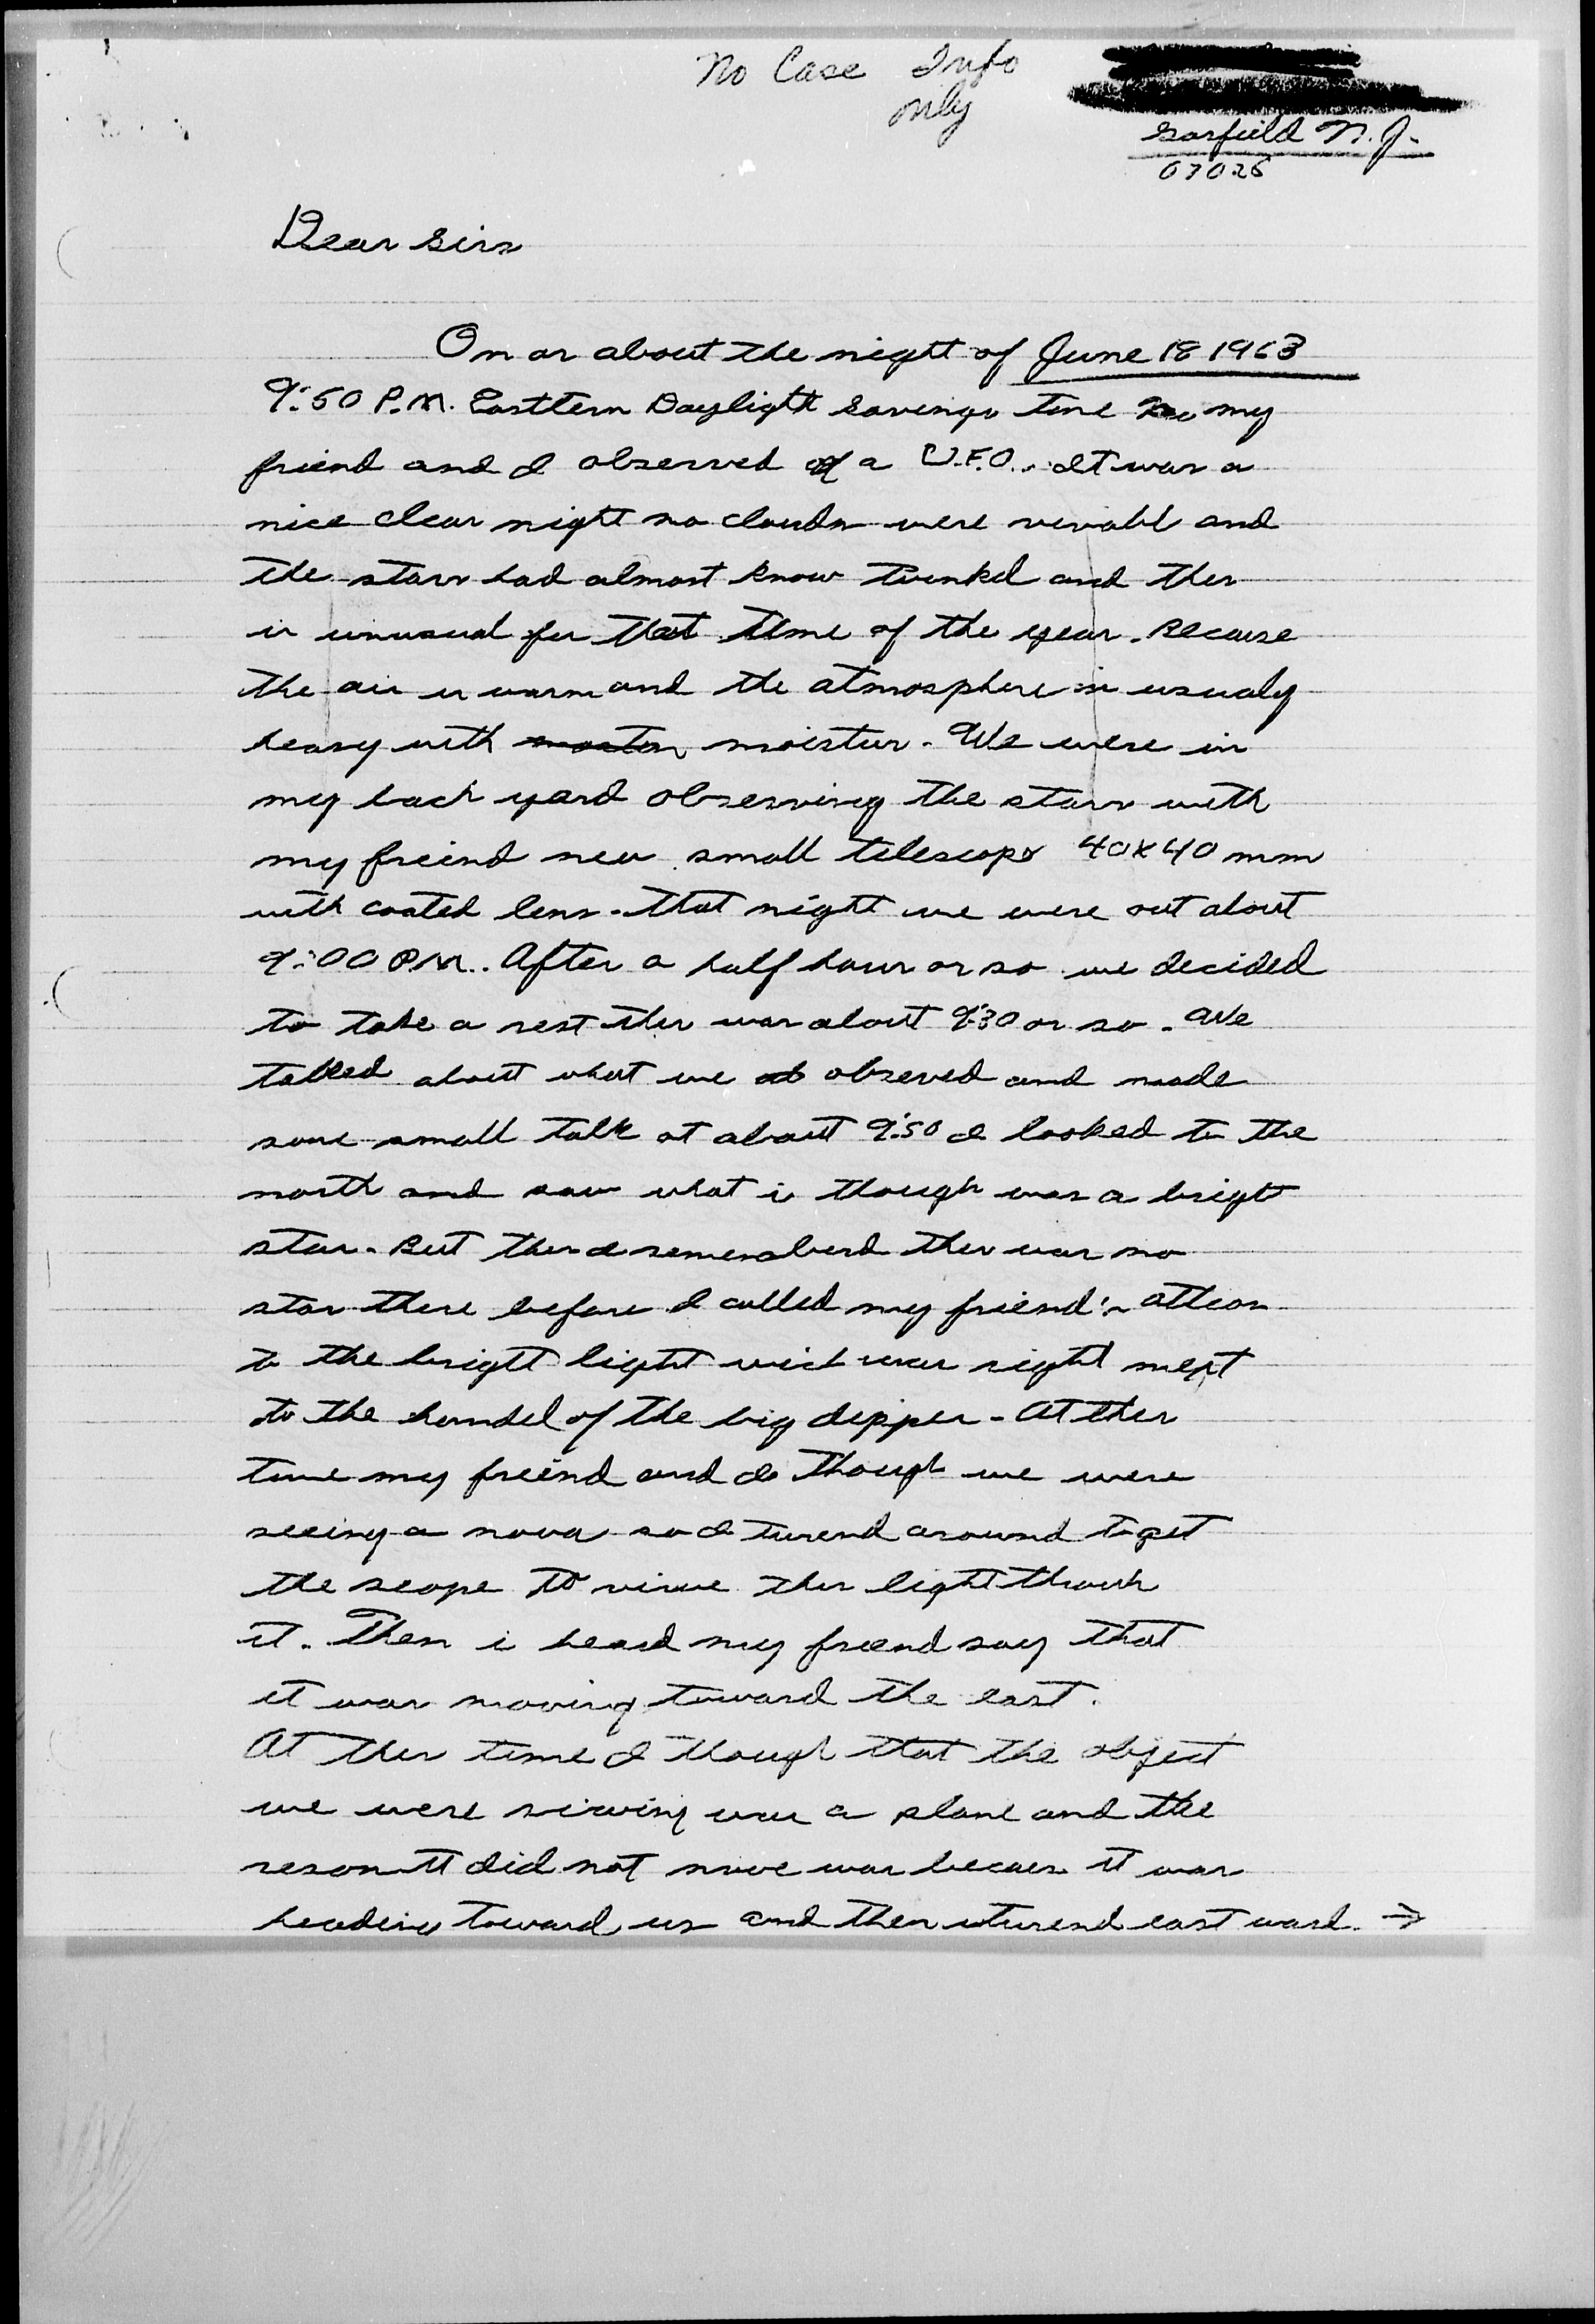 No Case Info
only
Garfield N.J.
07026
Dear Sirs
On or about the night of June 18 1963
9:50 P.M. Easttern Daylight Savings Time my
friend and I observed a U.F.O.. It was a
nice clear night no clouds were visabl and
the stars had almost know twinkel and this
is unusual for that time of the year. Because
the air is warm and the atmosphere is usualy
heavy with moistur. We were in
my back yard observing the stars with
my freind new small telescope 40X40 mm
with coated lens. That night we were out about
9:00 PM.. After a half hour or so we decided
to take a rest this was about 9:30 or so. We
talked about what we observed and made
some small talk at about 9:50 I looked to the
north and saw what i though was a bright
star. But then I rememberd ther was no
star there before I called my friend's attion
to the brigtt light wich was right next
to the handel of the big dipper. At this
time my freind and I though we were
seeing a nova so I turend around to get
the scope to viwe this light throuh
it. Then i heard my freend say that
it was moving toward the east.
At this time I though that the object
we were viewing was a plane and the
reson it did not move was becaes it was
heading toward us and then it turend east ward. →